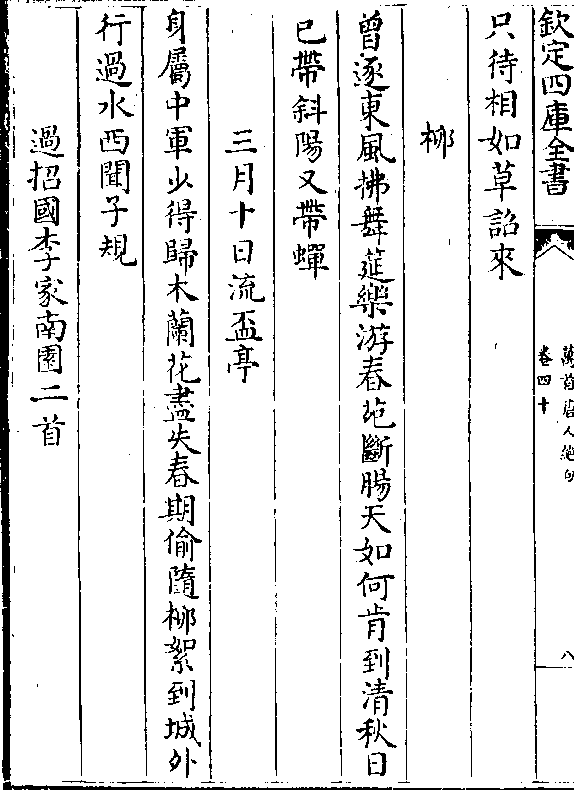 欽定四庫全書
萬首唐人絶句
卷四十
八
只待相如草詔來
柳
曽逐東風拂舞莚樂游春苑斷腸天如何肯到清秋日
已帶斜陽又帶蟬
三月十日流盃亭
身屬中軍少得歸木蘭花盡失春期偷隨柳絮到城外
行過水西聞子規
過招國李家南園二首